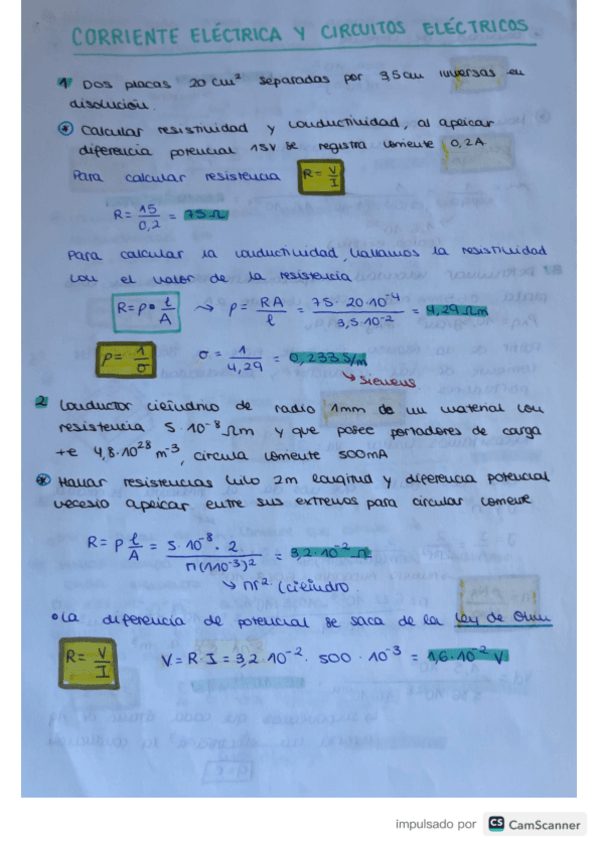 CORRIENTE ELÉCTRICA Y CIRCUITOS ELÉCTRICOS
1 Dos placas 20 cm² separadas por 3,5cm inversas en
disolución.
* Calcular resistividad y conductividad, al aplicar
diferencia potencial 15V se registra corriente 0,2A
Para calcular resistencia R = V/I
R = 15/0,2 = 75 Ω
Para calcular la conductividad, hallamos la resistividad
con el valor de la resistencia
R = ρ • l/A → ρ = RA/l = 75 · 20·10⁻⁴/3,5·10⁻² = 4,29 Ωm
ρ = 1/σ σ = 1/4,29 = 0,233 S/m
↳ siemens
2 Conductor cilíndrico de radio 1mm de un material con
resistencia 5·10⁻⁸ Ωm y que posee portadores de carga
+e 4,8·10²⁸ m⁻³, circula corriente 500mA
* Hallar resistencias hilo 2m longitud y diferencia potencial
necesio aplicar entre sus extremos para circular corriente
R = ρ l/A = 5·10⁻⁸ · 2/π(1·10⁻³)² = 3,2·10⁻² Ω
↳ πr² (cilindro
• La diferencia de potencial se saca de la Ley de Ohm
R = V/I V = R·I = 3,2·10⁻² · 500 · 10⁻³ = 1,6·10⁻² V
impulsado por CS CamScanner